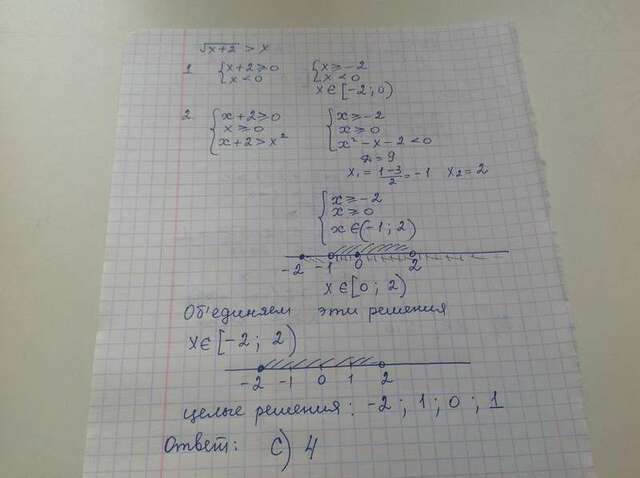 √x+2 > x
1 { x+2 ≥ 0 { x ≥ -2
x < 0 x < 0
x ∈ [-2; 0)
2 { x+2 ≥ 0 { x ≥ -2
x ≥ 0 x ≥ 0
x+2 > x² x² - x - 2 < 0
= 9
x₁ = 1-3/2 = -1 x₂ = 2
{ x ≥ -2
x ≥ 0
x ∈ (-1; 2)
-2 -1 0 2
x ∈ [0; 2)
Об'единяем эти решения
x ∈ [-2; 2)
-2 -1 0 1 2
целые решения: -2; 1; 0; 1
Ответ: C) 4